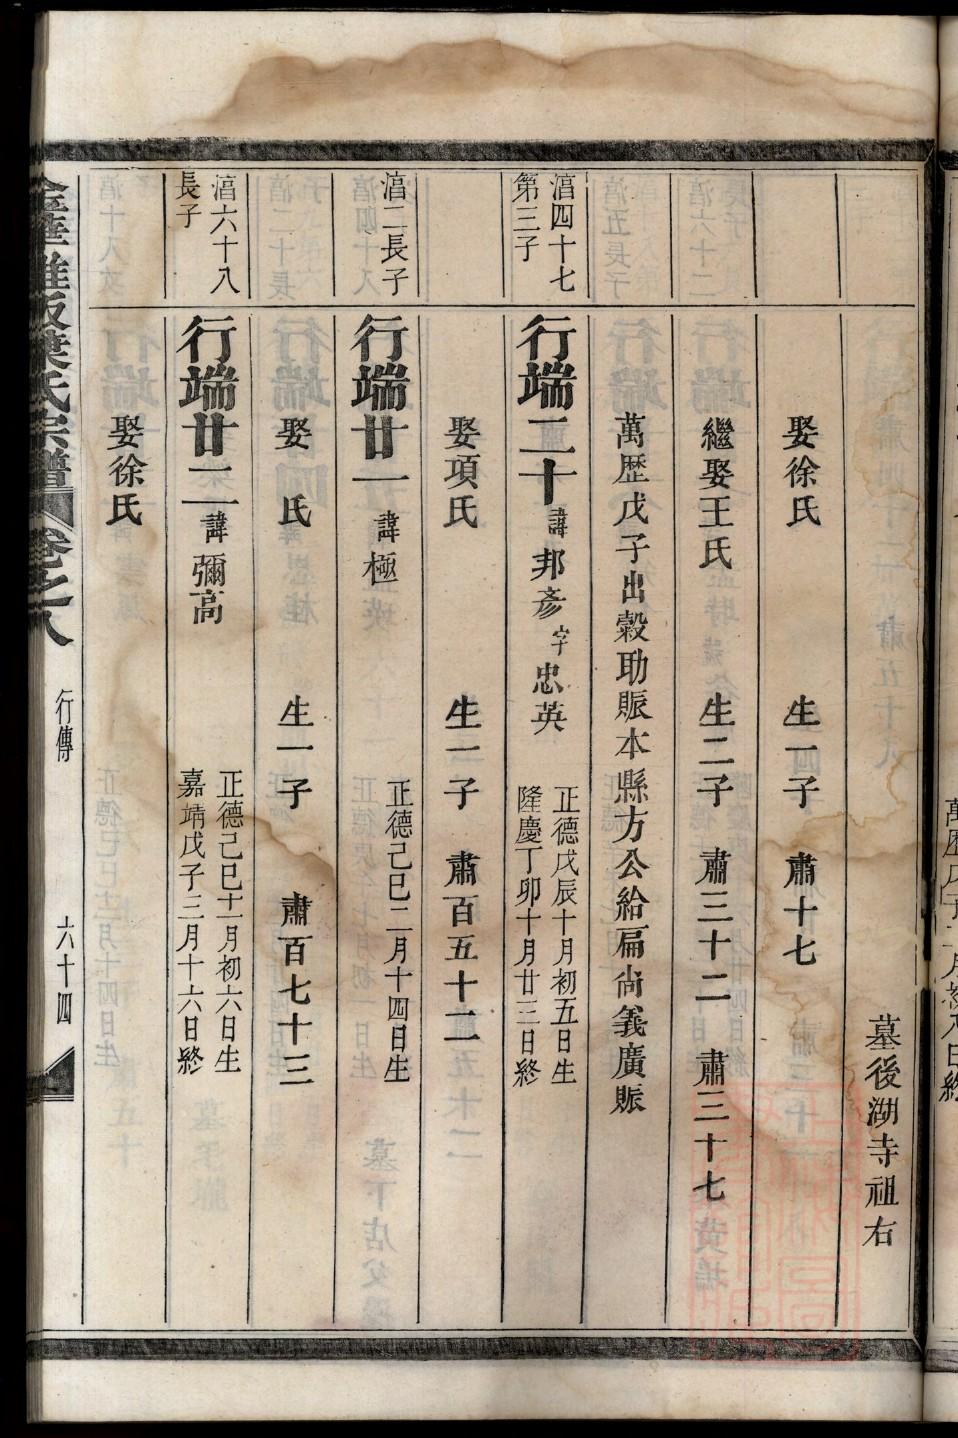 墓後湖寺祖右
娶徐氏 生一子 肅十七
繼娶王氏 生二子 肅三十二 肅三十七
萬歷戊子出穀助賑本縣方公給扁尚義廣賑
四十七
第三子
行端二十諱邦彥字忠英
正德戊辰十月初五日生
隆慶丁卯十月廿三日終
娶項氏 生一子 肅百五十二
二長子
行端廿一諱極
正德己巳二月十四日生
娶 氏 生一子 肅百七十三
六十八
長子
行端廿二諱彌高
正德己巳十一月初六日生
嘉靖戊子三月十六日終
娶徐氏
葉氏宗譜 卷之八 行傳 六十四